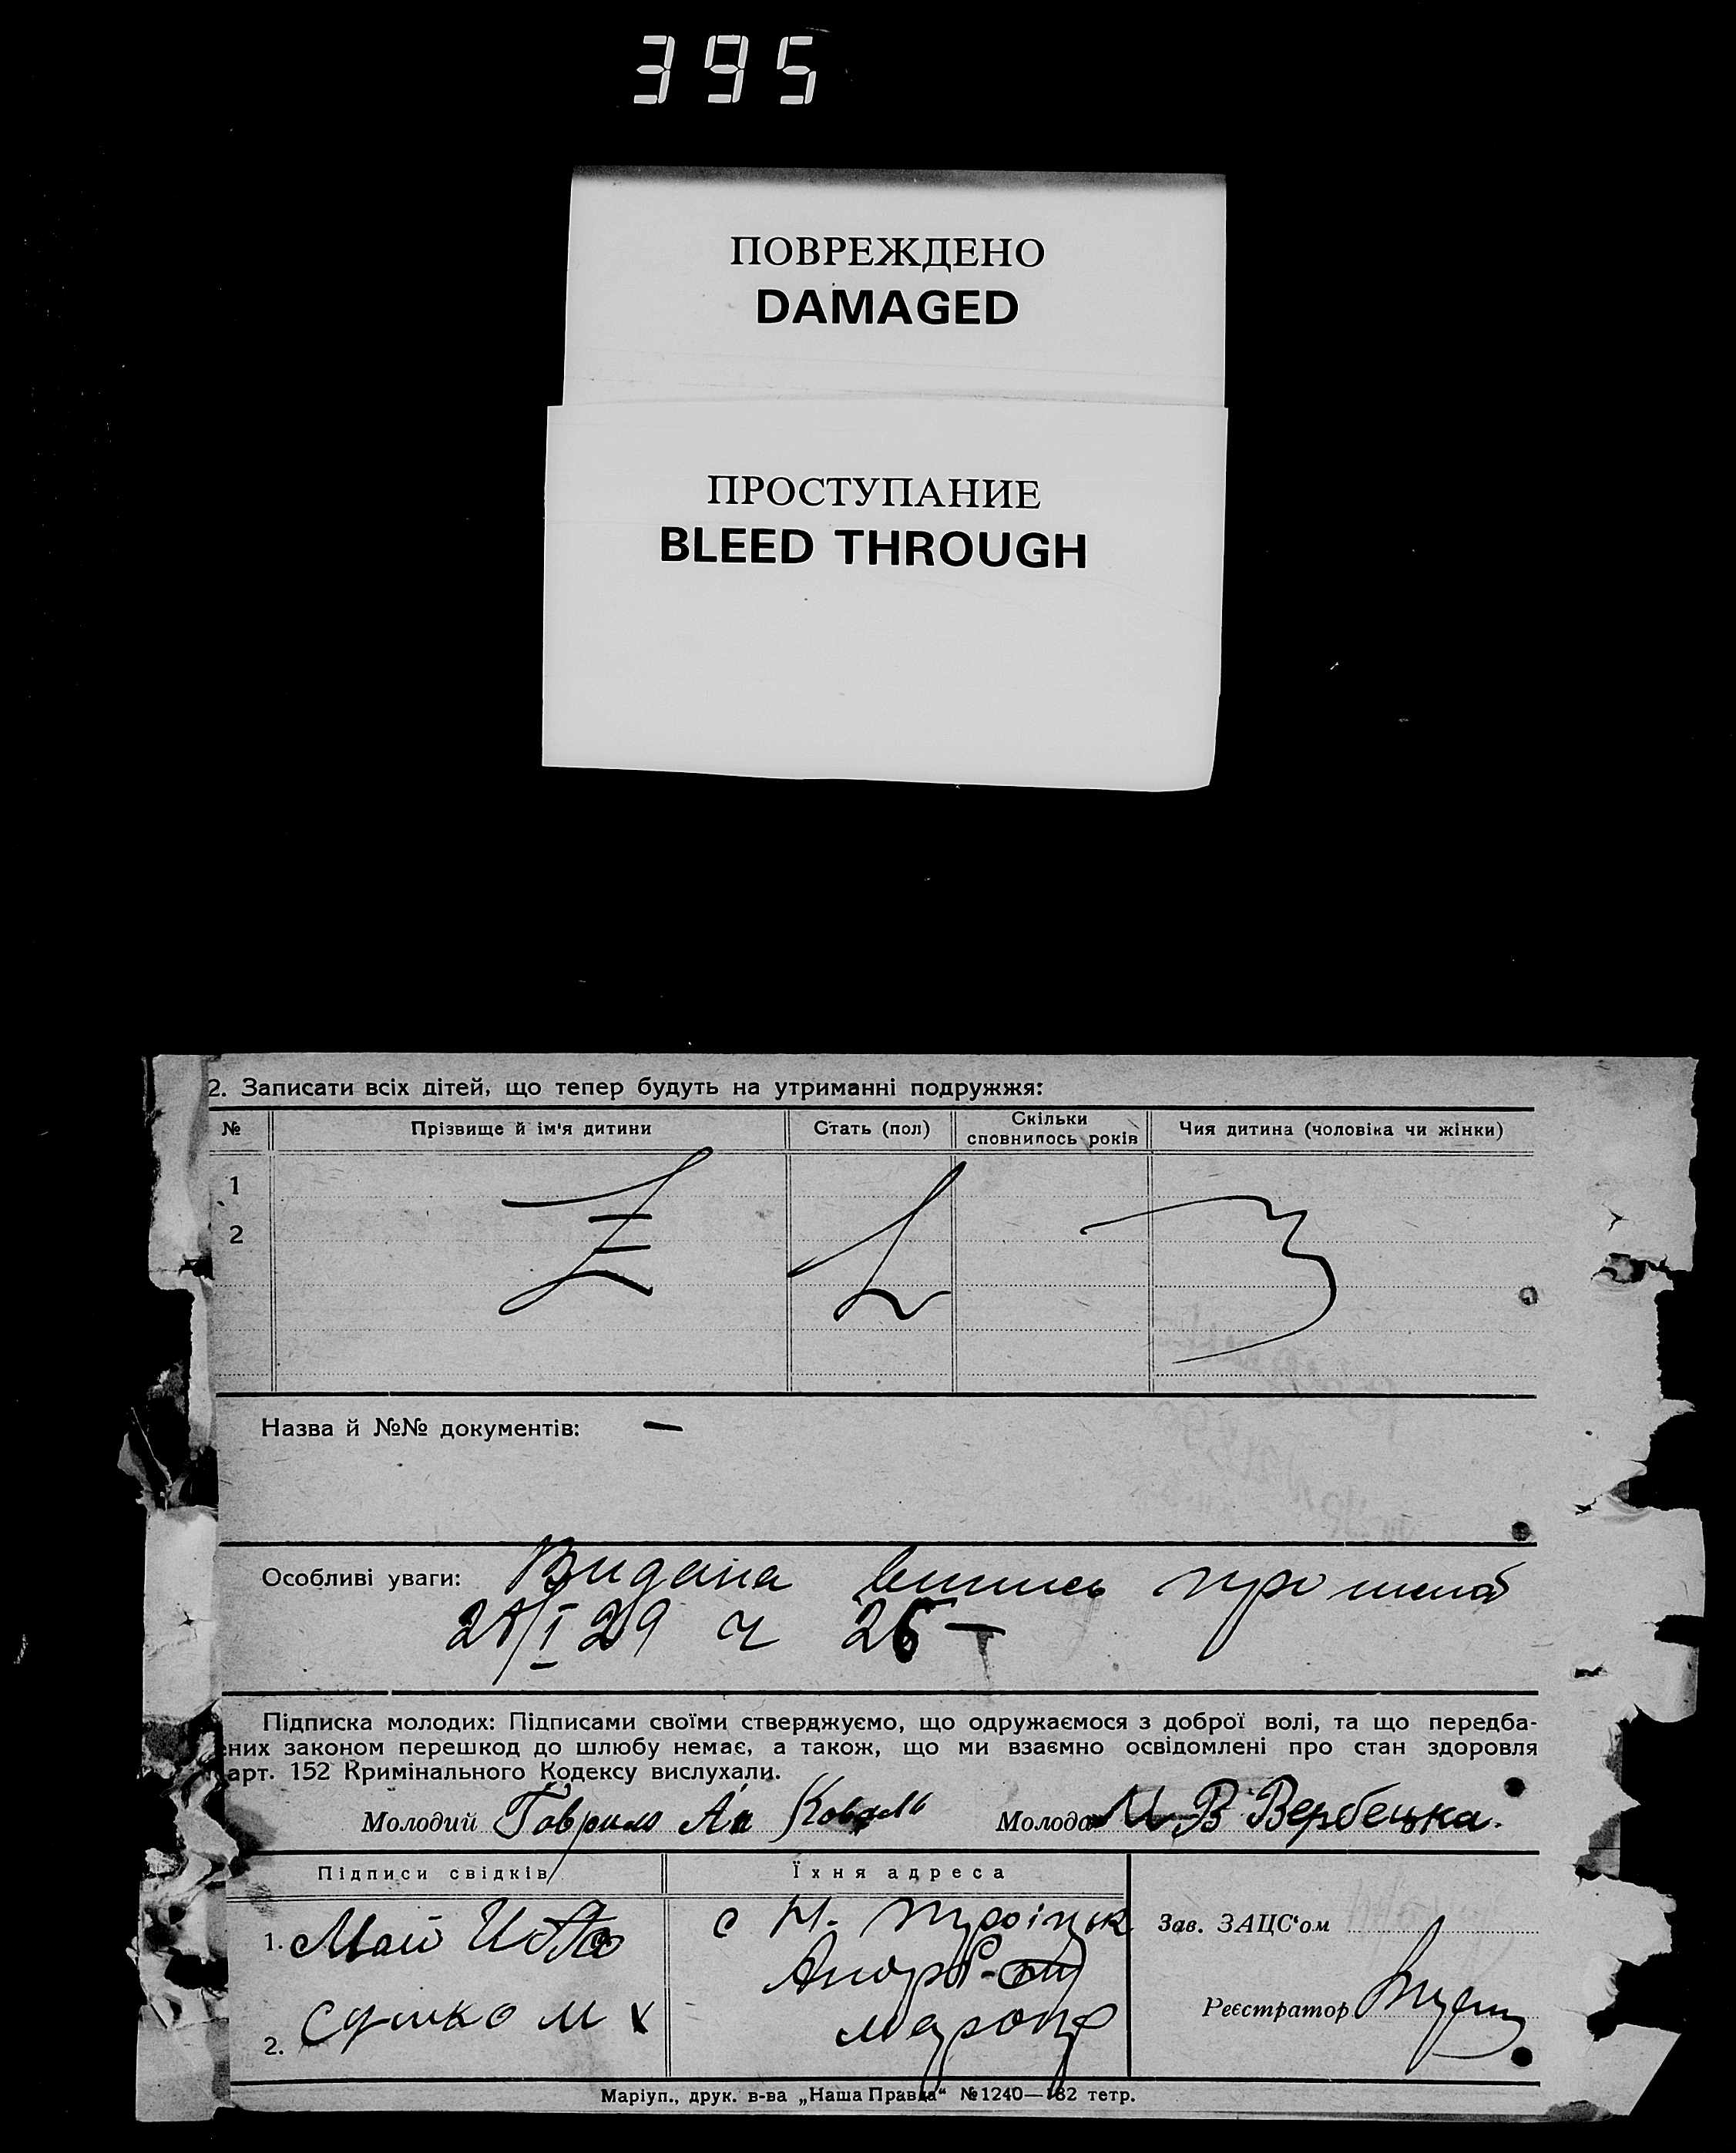 395
ПОВРЕЖДЕНО
DAMAGED
ПРОСТУПАНИЕ
BLEED THROUGH
2. Записати всіх дітей, що тепер будуть на утриманні подружжя:
№ Прізвище й ім'я дитини Стать (пол) Скільки сповнилось років Чия дитина (чоловіка чи жінки)
1
2
Назва й №№ документів: —
Особливі уваги: Видана випись про шлюб
29 ч 26 —
Підписка молодих: Підписами своїми стверджуємо, що одружаємося з доброї волі, та що передба-
ених законом перешкод до шлюбу немає, а також, що ми взаємно освідомлені про стан здоровля
арт. 152 Кримінального Кодексу вислухали.
Молодий Гаврило Коваль Молода М В Вербецька.
Підписи свідків Їхня адреса
1. Май с Н. Троіцьк Зав. ЗАЦС'ом
2. Сушко М Х Реєстратор
Маріуп., друк. в-ва „Наша Правда" №1240—182 тетр.